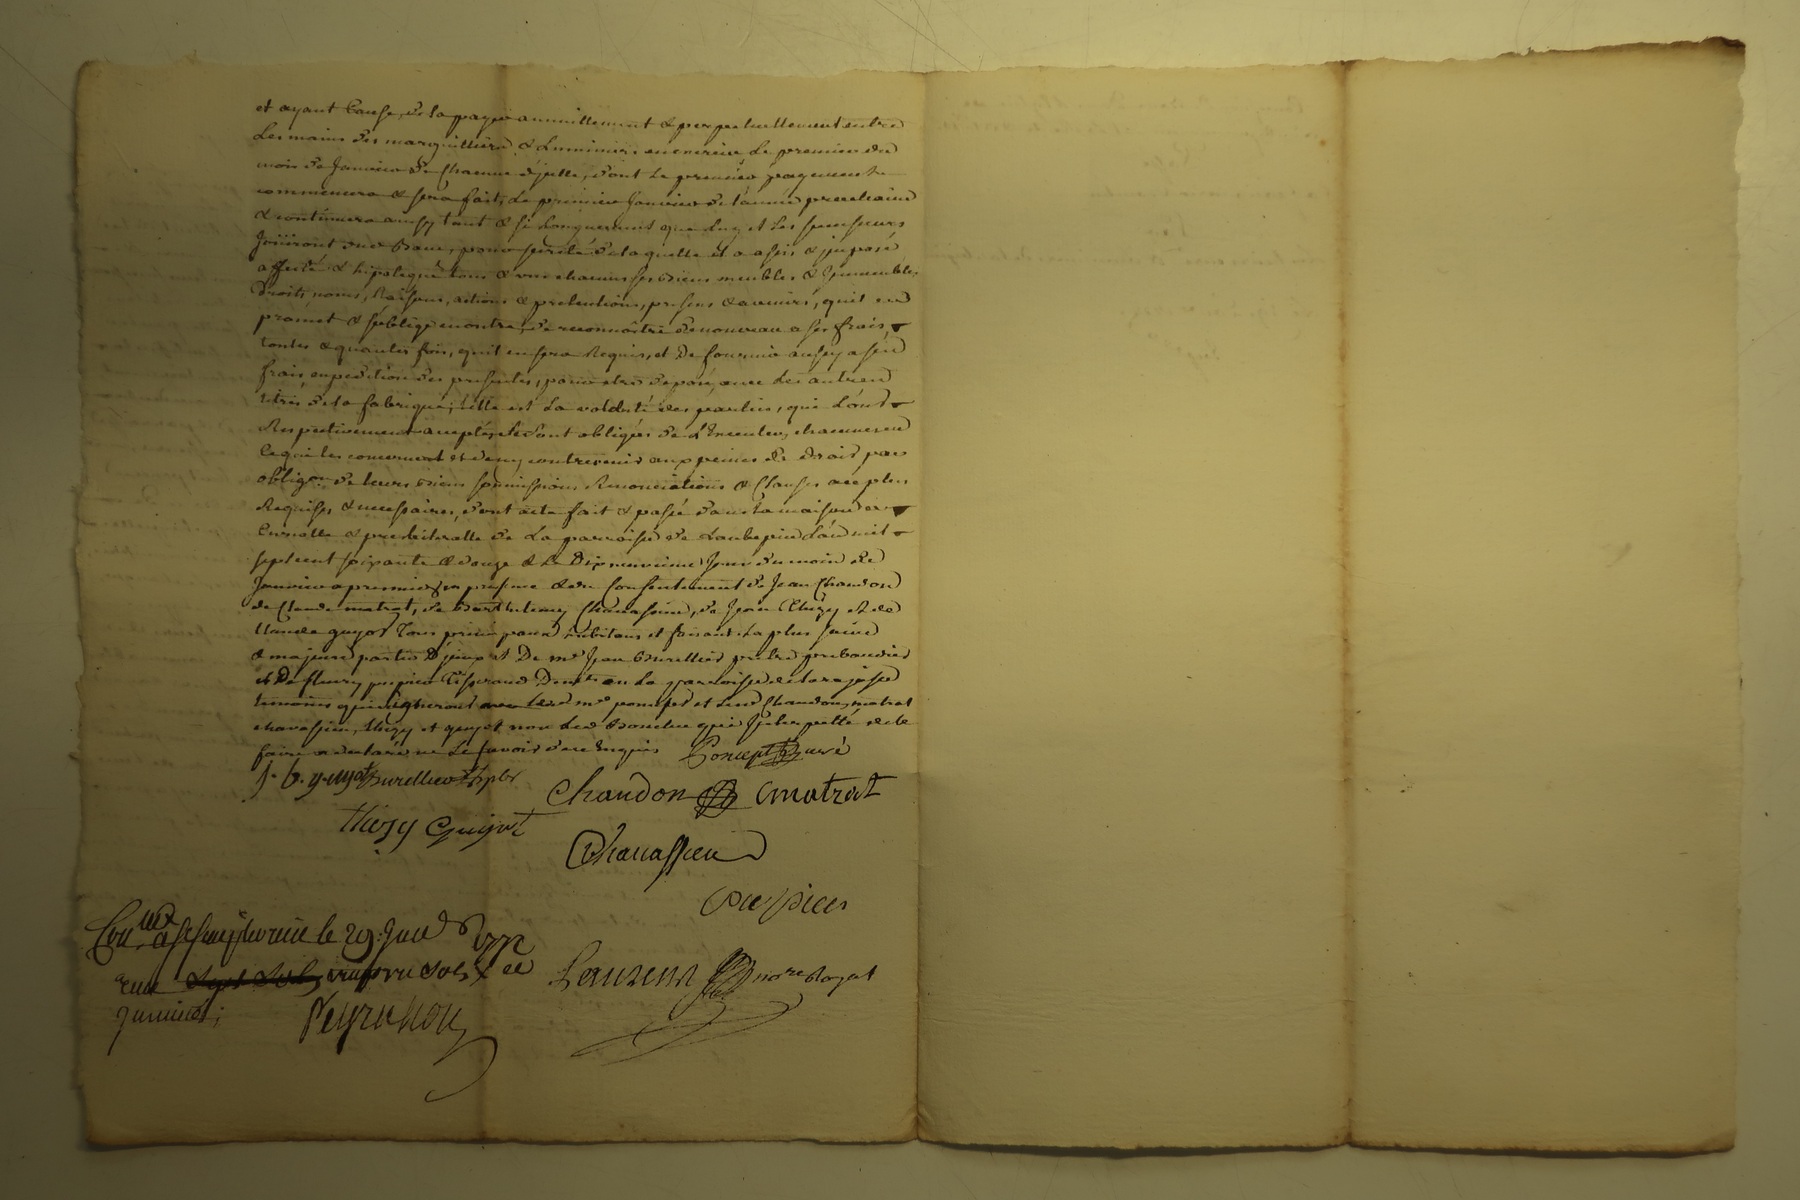 et ayant Cause, de la payer annuellement & perpetuellement entre
Les mains des marguilliers & Luminiers en exercice, Le premier du
mois de Janvier de Chacune d'jcelle, dont Le premier payement
commencera & sera fait, Le premier Janvier de l'année prochaine
& continuera aussy tant & si Longuement que luy et Les successeurs
Joüiront dud Banc, pour sureté de laquelle il a assis & jmposé
affecté & hipotequé tous & uns chacuns ses biens meubles & Jmmeubles
Droits, noms, Raisons, actions & pretentions, presens & avenirs, qu'il
promet & s'oblige de reconnoitre de nouveau a ses frais,
toutes & quantes fois, qu'il en sera Requis, et De fournir aussy a ses
frais, expedition des presentes, pour etre deposé avec Les autres
titres de la fabrique; telle est La volonté des parties, qui L'ont
Respectivement accepté, & se sont obligés de L'Executer, chacun en
Ce qui les concernent et de n'y contrevenir aux peines de Droit par
oblig.on de leurs biens soumissions Renonciations & Clauses a ce plus
Requises & necessaires, dont acte fait & passé dans la maison
Curialle & presbiteralle de La parroisse de Laubepin L'an mil
septcent soixante & douze & Le Dix neuvieme Jour du mois de
Janvier apres midy en presence & du Consentement de Jean Chaudon
de Claude matrat, de Barthelemy Chavassieu, de Jean Thizy et de
Claude guyot Tous principaux habitans et faisant La plus saine
& majeure partie D'jceux et De mre Jean Burellier prêtre prebandier
et De fleury puipier Tisserand Demt en La parroisse de Larajasse
temoins qui signeront avec led. mre poncept et led Chaudon, matrat
chavassieu, thizy et guyot, non Led qui Jnterpellé de le
faire a declaré ne Le savoir de ce Enquis Poncept Curé
j. b. guyot Burellier ptre
Chaudon C matrat
thizy C guyot
Chavassieu
puipier
Con.lé à St Simphorien le 29. Janv 1772
reçu sols
Peyrichon
Laurent no.re Royal